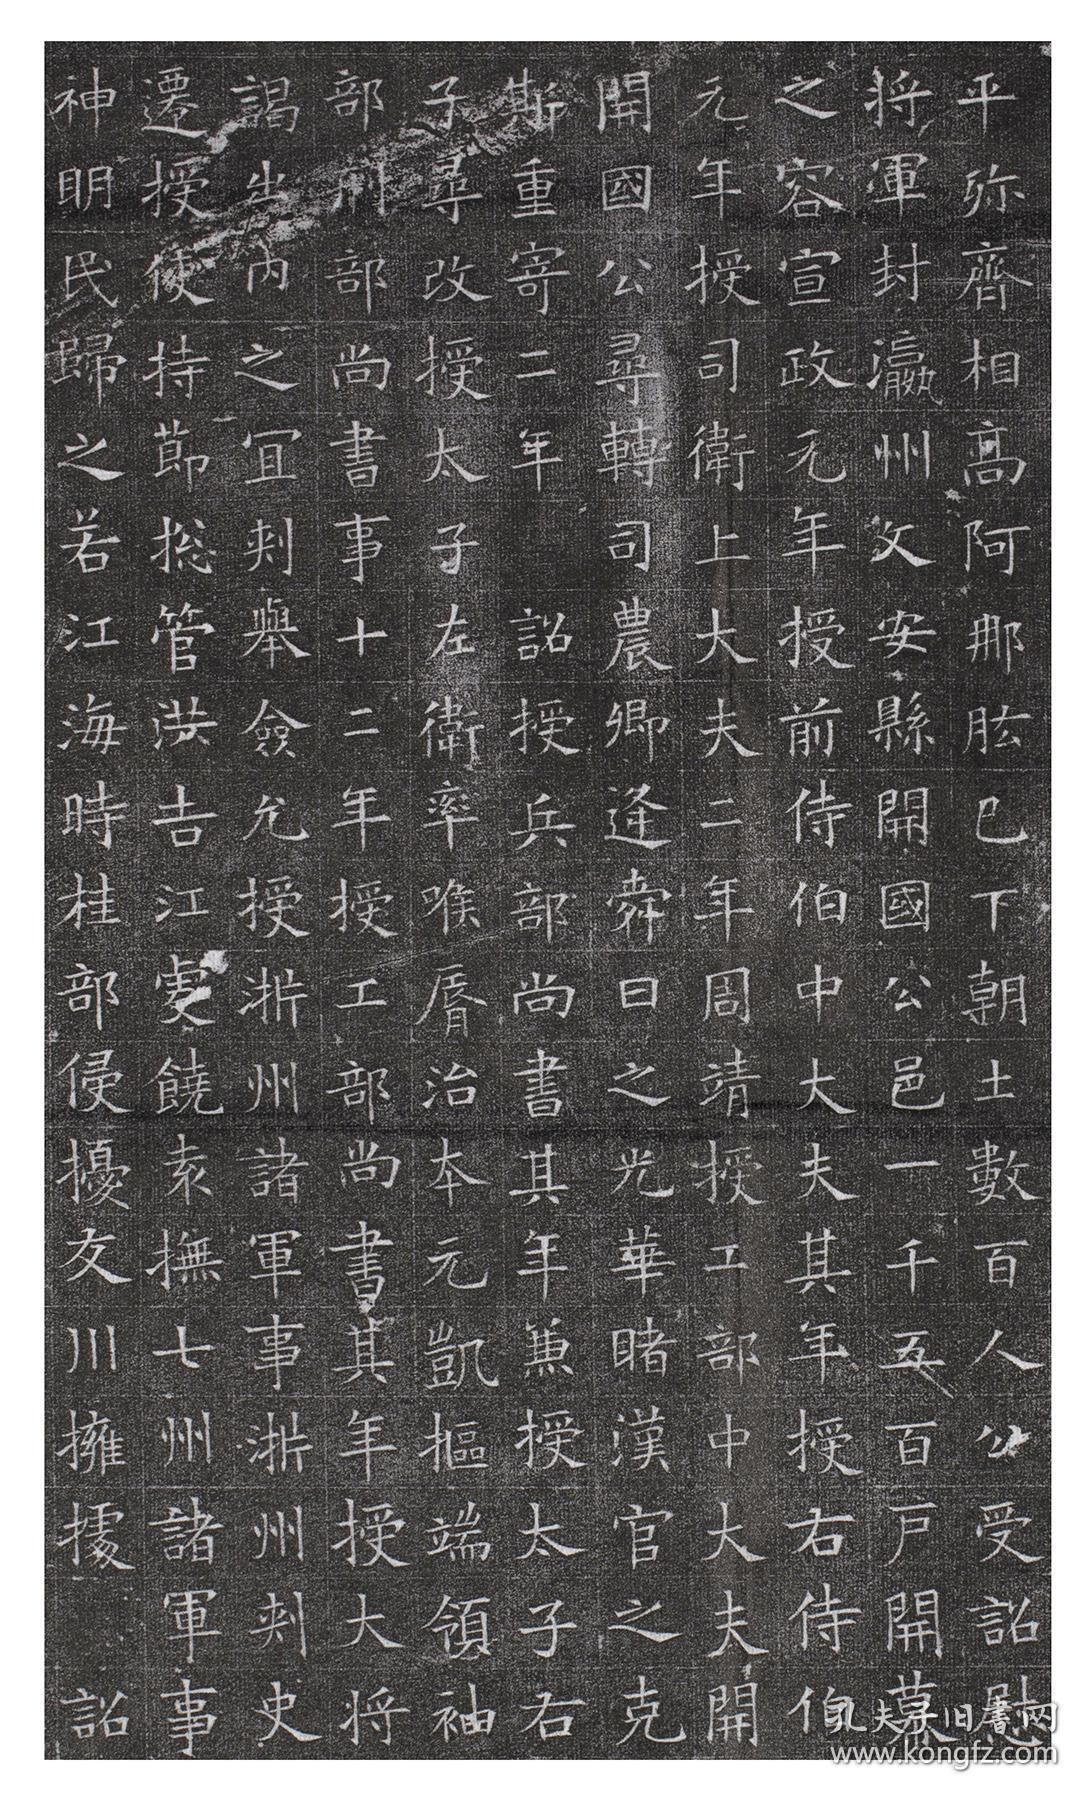 平弥齊相高阿那肱已下朝士數百人公受詔慰
将軍封瀛州文安縣開國公邑一千五百戸開幕
之容宣政元年授前侍伯中大夫其年授右侍伯
元年授司衛上大夫二年周靖授工部中大夫開
開國公尋轉司農卿逢舜日之光華睹漢官之克
斯重寄二年 詔授兵部尚書其年兼授太子右
子尋改授太子左衛率喉脣治本元凱樞端領袖
部刑部尚書事十二年授工部尚書其年授大将
謁出内之宜刺舉僉允授淅州諸軍事淅州刺史
遷授使持節揔管洪吉江虔饒袁撫七州諸軍事
神明民歸之若江海時桂部侵擾交川擁據 詔
孔夫子旧書网
www.kongfz.com